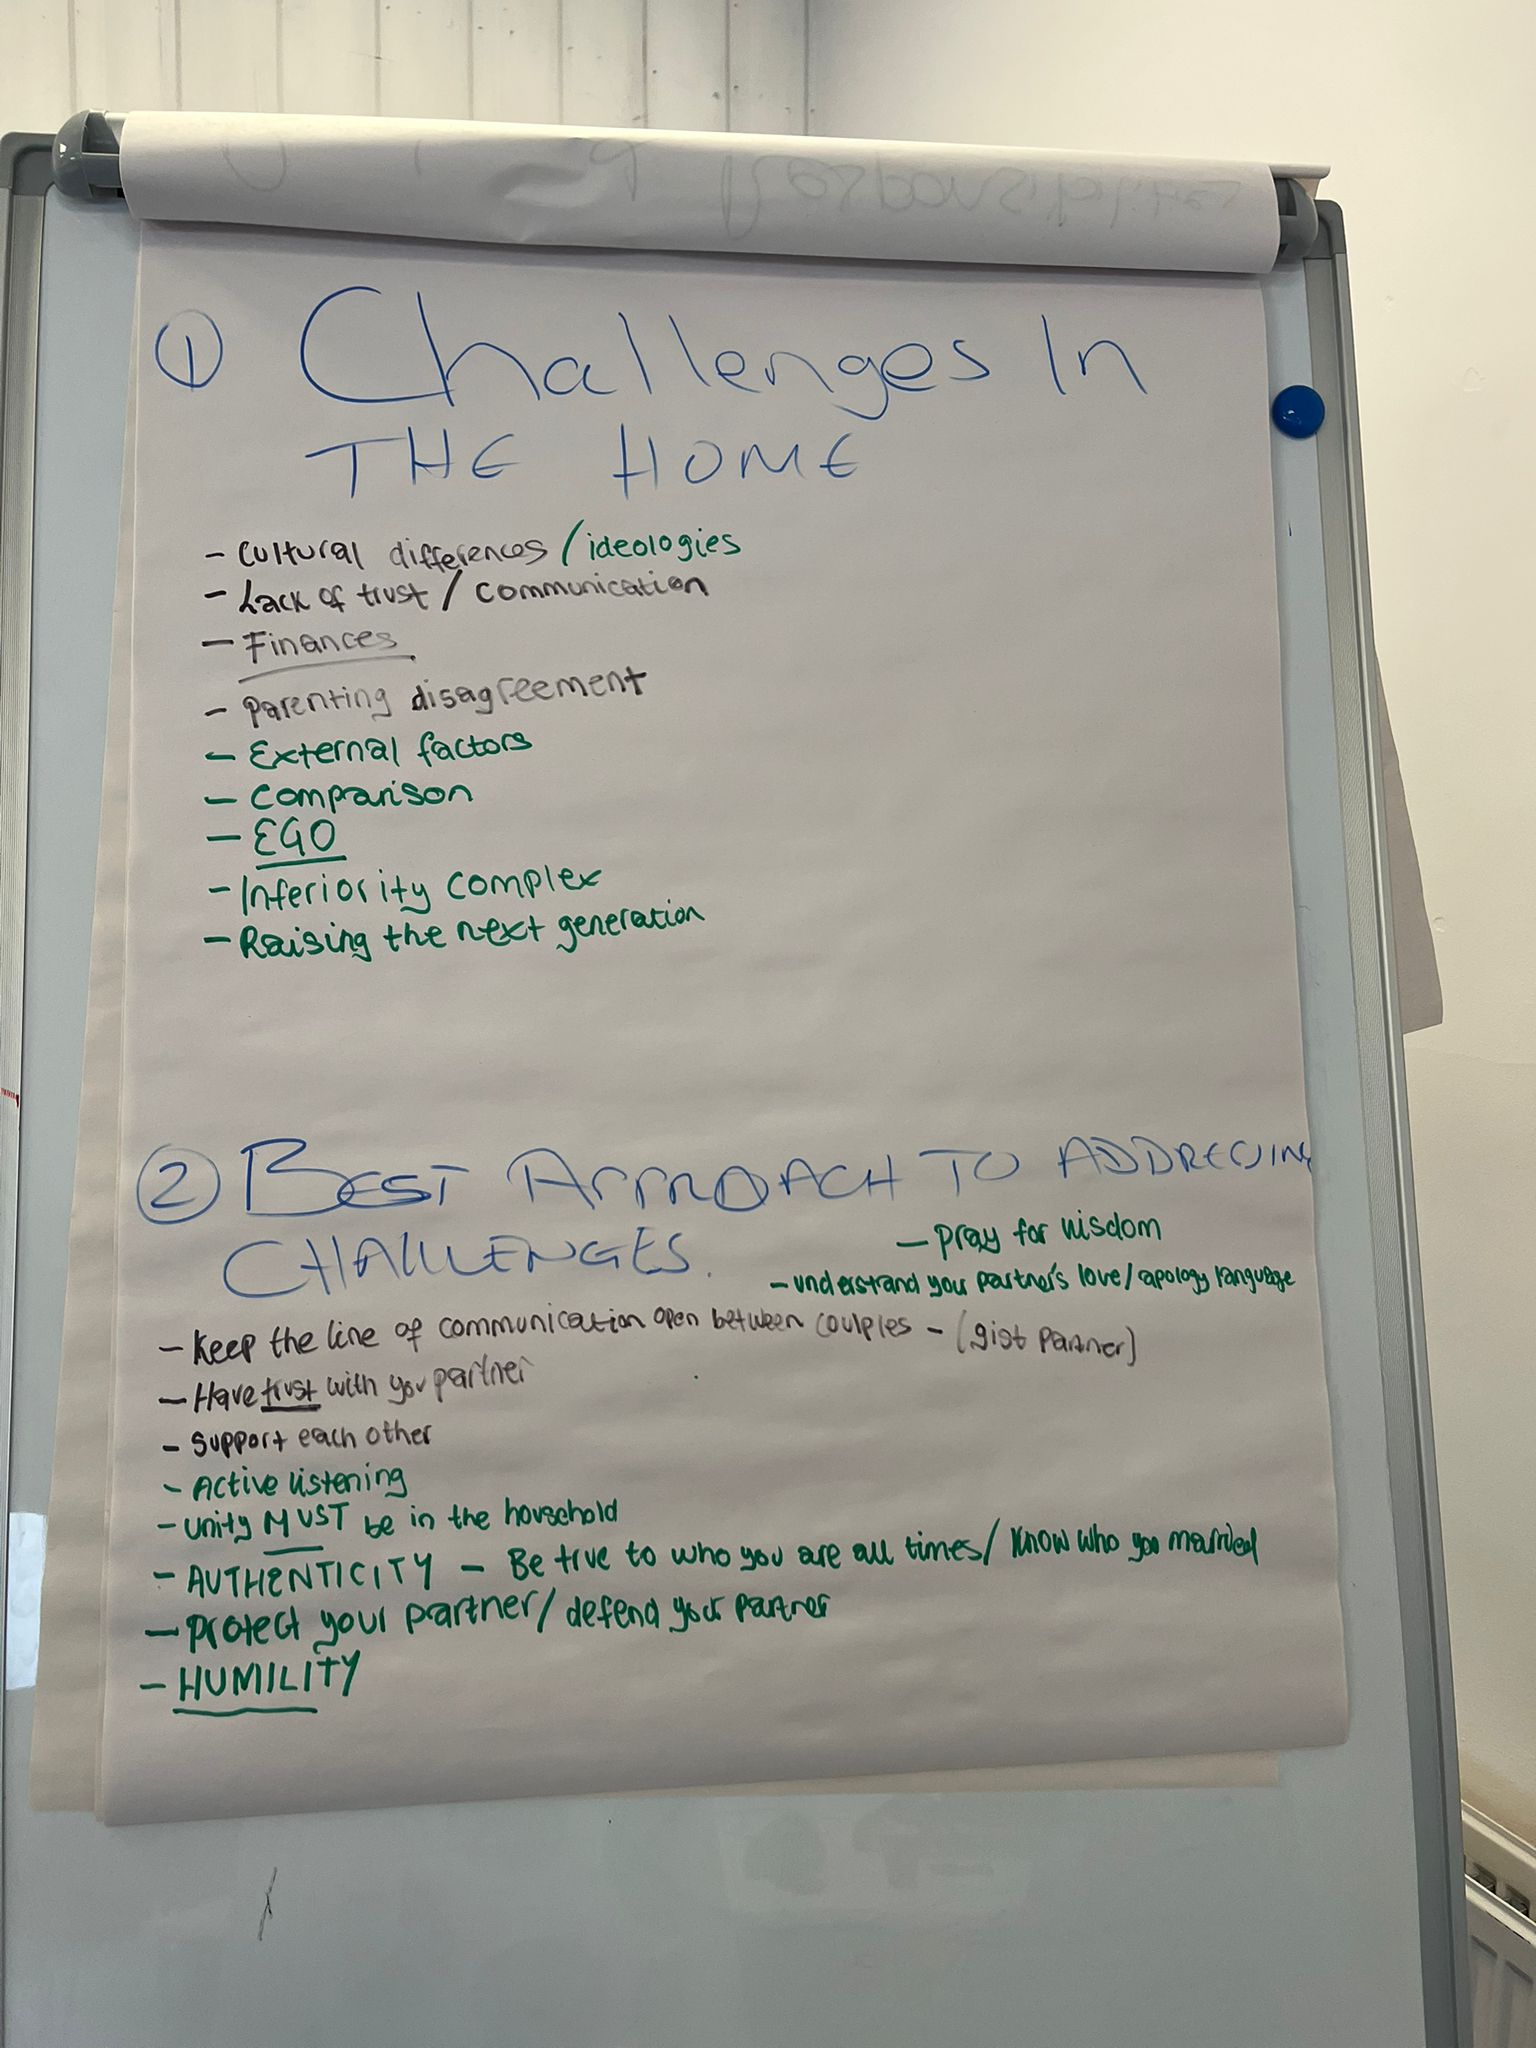 ① Challenges In
THE HOME
- Cultural differences / ideologies
- Lack of trust / communication
- Finances
- Parenting disagreement
- External factors
- Comparison
- EGO
- Inferiority complex
- Raising the next generation
② BEST APPROACH TO ADDRESSING
CHALLENGES.
- Pray for wisdom
- understand your partner's love/apology language
- Keep the line of communication open between couples - (gist partner)
- Have trust with your partner
- Support each other
- Active listening
- Unity MUST be in the household
- AUTHENTICITY - Be true to who you are all times/ Know who you married
- Protect your partner/ defend your partner
- HUMILITY